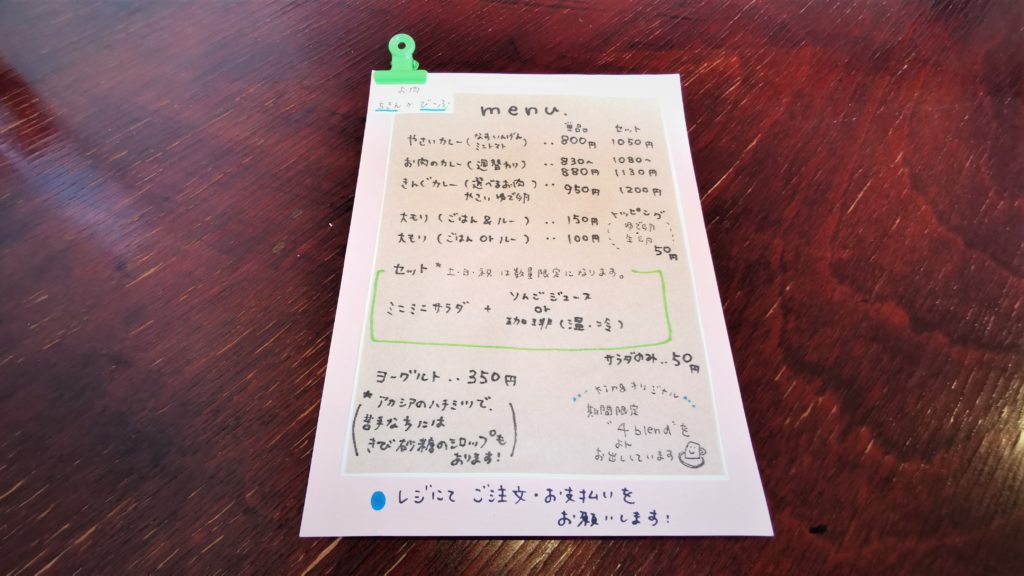 お肉
ちきん か びーふ
menu.
単品 セット
やさいカレー(なすいんげん ミニトマト) ‥ 800円 1050円
お肉のカレー(週替わり) ‥ 830〜 1080〜
880円 1130円
きんぐカレー(選べるお肉 ‥ 950円 1200円
やさい ゆで卵)
大もり(ごはん & ルー) ‥ 150円
大もり(ごはん or ルー) ‥ 100円
トッピング
ゆで卵
生玉
50円
セット * 土・日・祝 は数量限定になります。
ミニミニサラダ + りんごジュース
or
珈琲(温・冷)
サラダのみ‥50円
ヨーグルト‥350円
*アカシアのハチミツで、
苦手な方には
きび砂糖のシロップも
あります!
オリジナル
期間限定
"4 blend"を
よん
お出ししています
レジにて ご注文・お支払いを
お願いします!